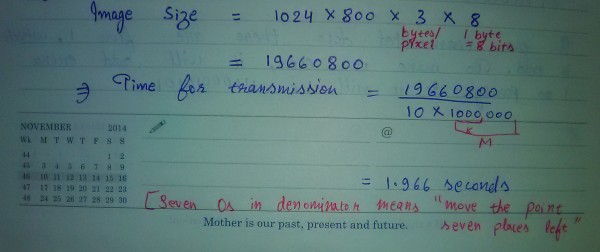 Image Size = 1024 × 800 × 3 × 8
bytes/ 1 byte
pixel = 8 bits
= 19660800
⇒ Time for transmission = 19660800
10 × 1000,000
K
M
@
NOVEMBER 2014
Wk M T W T F S S
44 1 2
45 3 4 5 6 7 8 9
46 10 11 12 13 14 15 16
47 17 18 19 20 21 22 23
48 24 25 26 27 28 29 30
= 1.966 seconds
[Seven 0s in denominator means "move the point
seven places left"
Mother is our past, present and future.